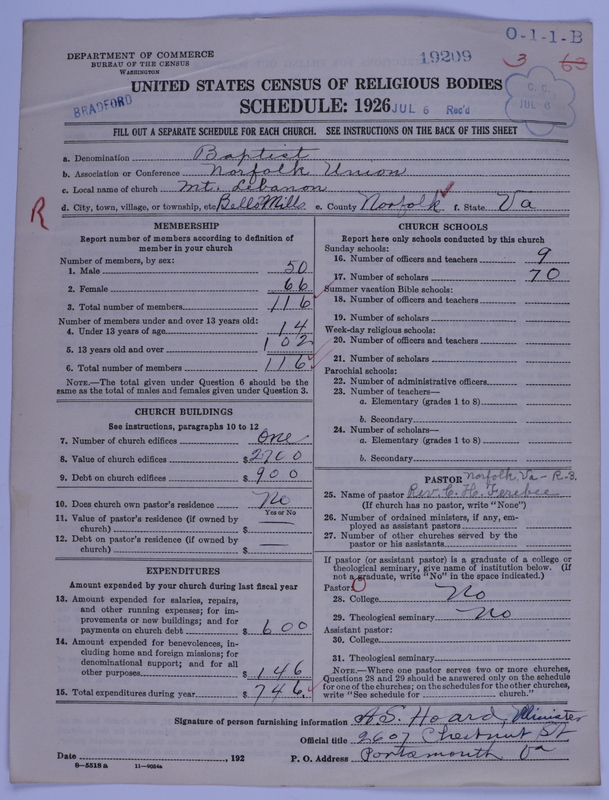 O-1-1-B
DEPARTMENT OF COMMERCE
BUREAU OF THE CENSUS
WASHINGTON
19209
3 63
UNITED STATES CENSUS OF RELIGIOUS BODIES
BRADFORD
SCHEDULE: 1926
JUL 6 Rec'd
C. C.
JUL 6
FILL OUT A SEPARATE SCHEDULE FOR EACH CHURCH. SEE INSTRUCTIONS ON THE BACK OF THIS SHEET
a. Denomination Baptist
b. Association or Conference Norfolk Union
c. Local name of church Mt. Lebanon
R
d. City, town, village, or township, etc. Bells Mills e. County Norfolk f. State Va
MEMBERSHIP
Report number of members according to definition of member in your church
Number of members, by sex:
1. Male 50
2. Female 66
3. Total number of members 116
Number of members under and over 13 years old:
4. Under 13 years of age 14
5. 13 years old and over 102
6. Total number of members 116
NOTE.—The total given under Question 6 should be the
same as the total of males and females given under Question 3.
CHURCH BUILDINGS
See instructions, paragraphs 10 to 12
7. Number of church edifices One
8. Value of church edifices $ 2700
9. Debt on church edifices $ 900
10. Does church own pastor's residence? No
Yes or No
11. Value of pastor's residence (if owned by
church) $ —
12. Debt on pastor's residence (if owned by
church) $ —
EXPENDITURES
Amount expended by your church during last fiscal year
13. Amount expended for salaries, repairs,
and other running expenses; for im-
provements or new buildings; and for
payments on church debt $ 600
14. Amount expended for benevolences, in-
cluding home and foreign missions; for
denominational support; and for all
other purposes $ 146
15. Total expenditures during year $ 746.
CHURCH SCHOOLS
Report here only schools conducted by this church
Sunday schools:
16. Number of officers and teachers 9
17. Number of scholars 70
Summer vacation Bible schools:
18. Number of officers and teachers
19. Number of scholars
Week-day religious schools:
20. Number of officers and teachers
21. Number of scholars
Parochial schools:
22. Number of administrative officers
23. Number of teachers—
a. Elementary (grades 1 to 8)
b. Secondary
24. Number of scholars—
a. Elementary (grades 1 to 8)
b. Secondary
PASTOR Norfolk Va - R.3.
25. Name of pastor Rev. C. H. Ferebee
(If church has no pastor, write "None")
26. Number of ordained ministers, if any, em-
ployed as assistant pastors
27. Number of other churches served by the
pastor or his assistants
If pastor (or assistant pastor) is a graduate of a college or
theological seminary, give name of institution below. (If
not a graduate, write "No" in the space indicated.)
Pastor: O
28. College No
29. Theological seminary No
Assistant pastor:
30. College
31. Theological seminary
NOTE.—Where one pastor serves two or more churches,
Questions 28 and 29 should be answered only on the schedule
for one of the churches; on the schedules for the other churches,
write "See schedule for church."
Signature of person furnishing information A.S. Hoard, Minister
Official title 2607 Chestnut St
Date , 192 P. O. Address Portsmouth Va
8—5518 a 11—9084a